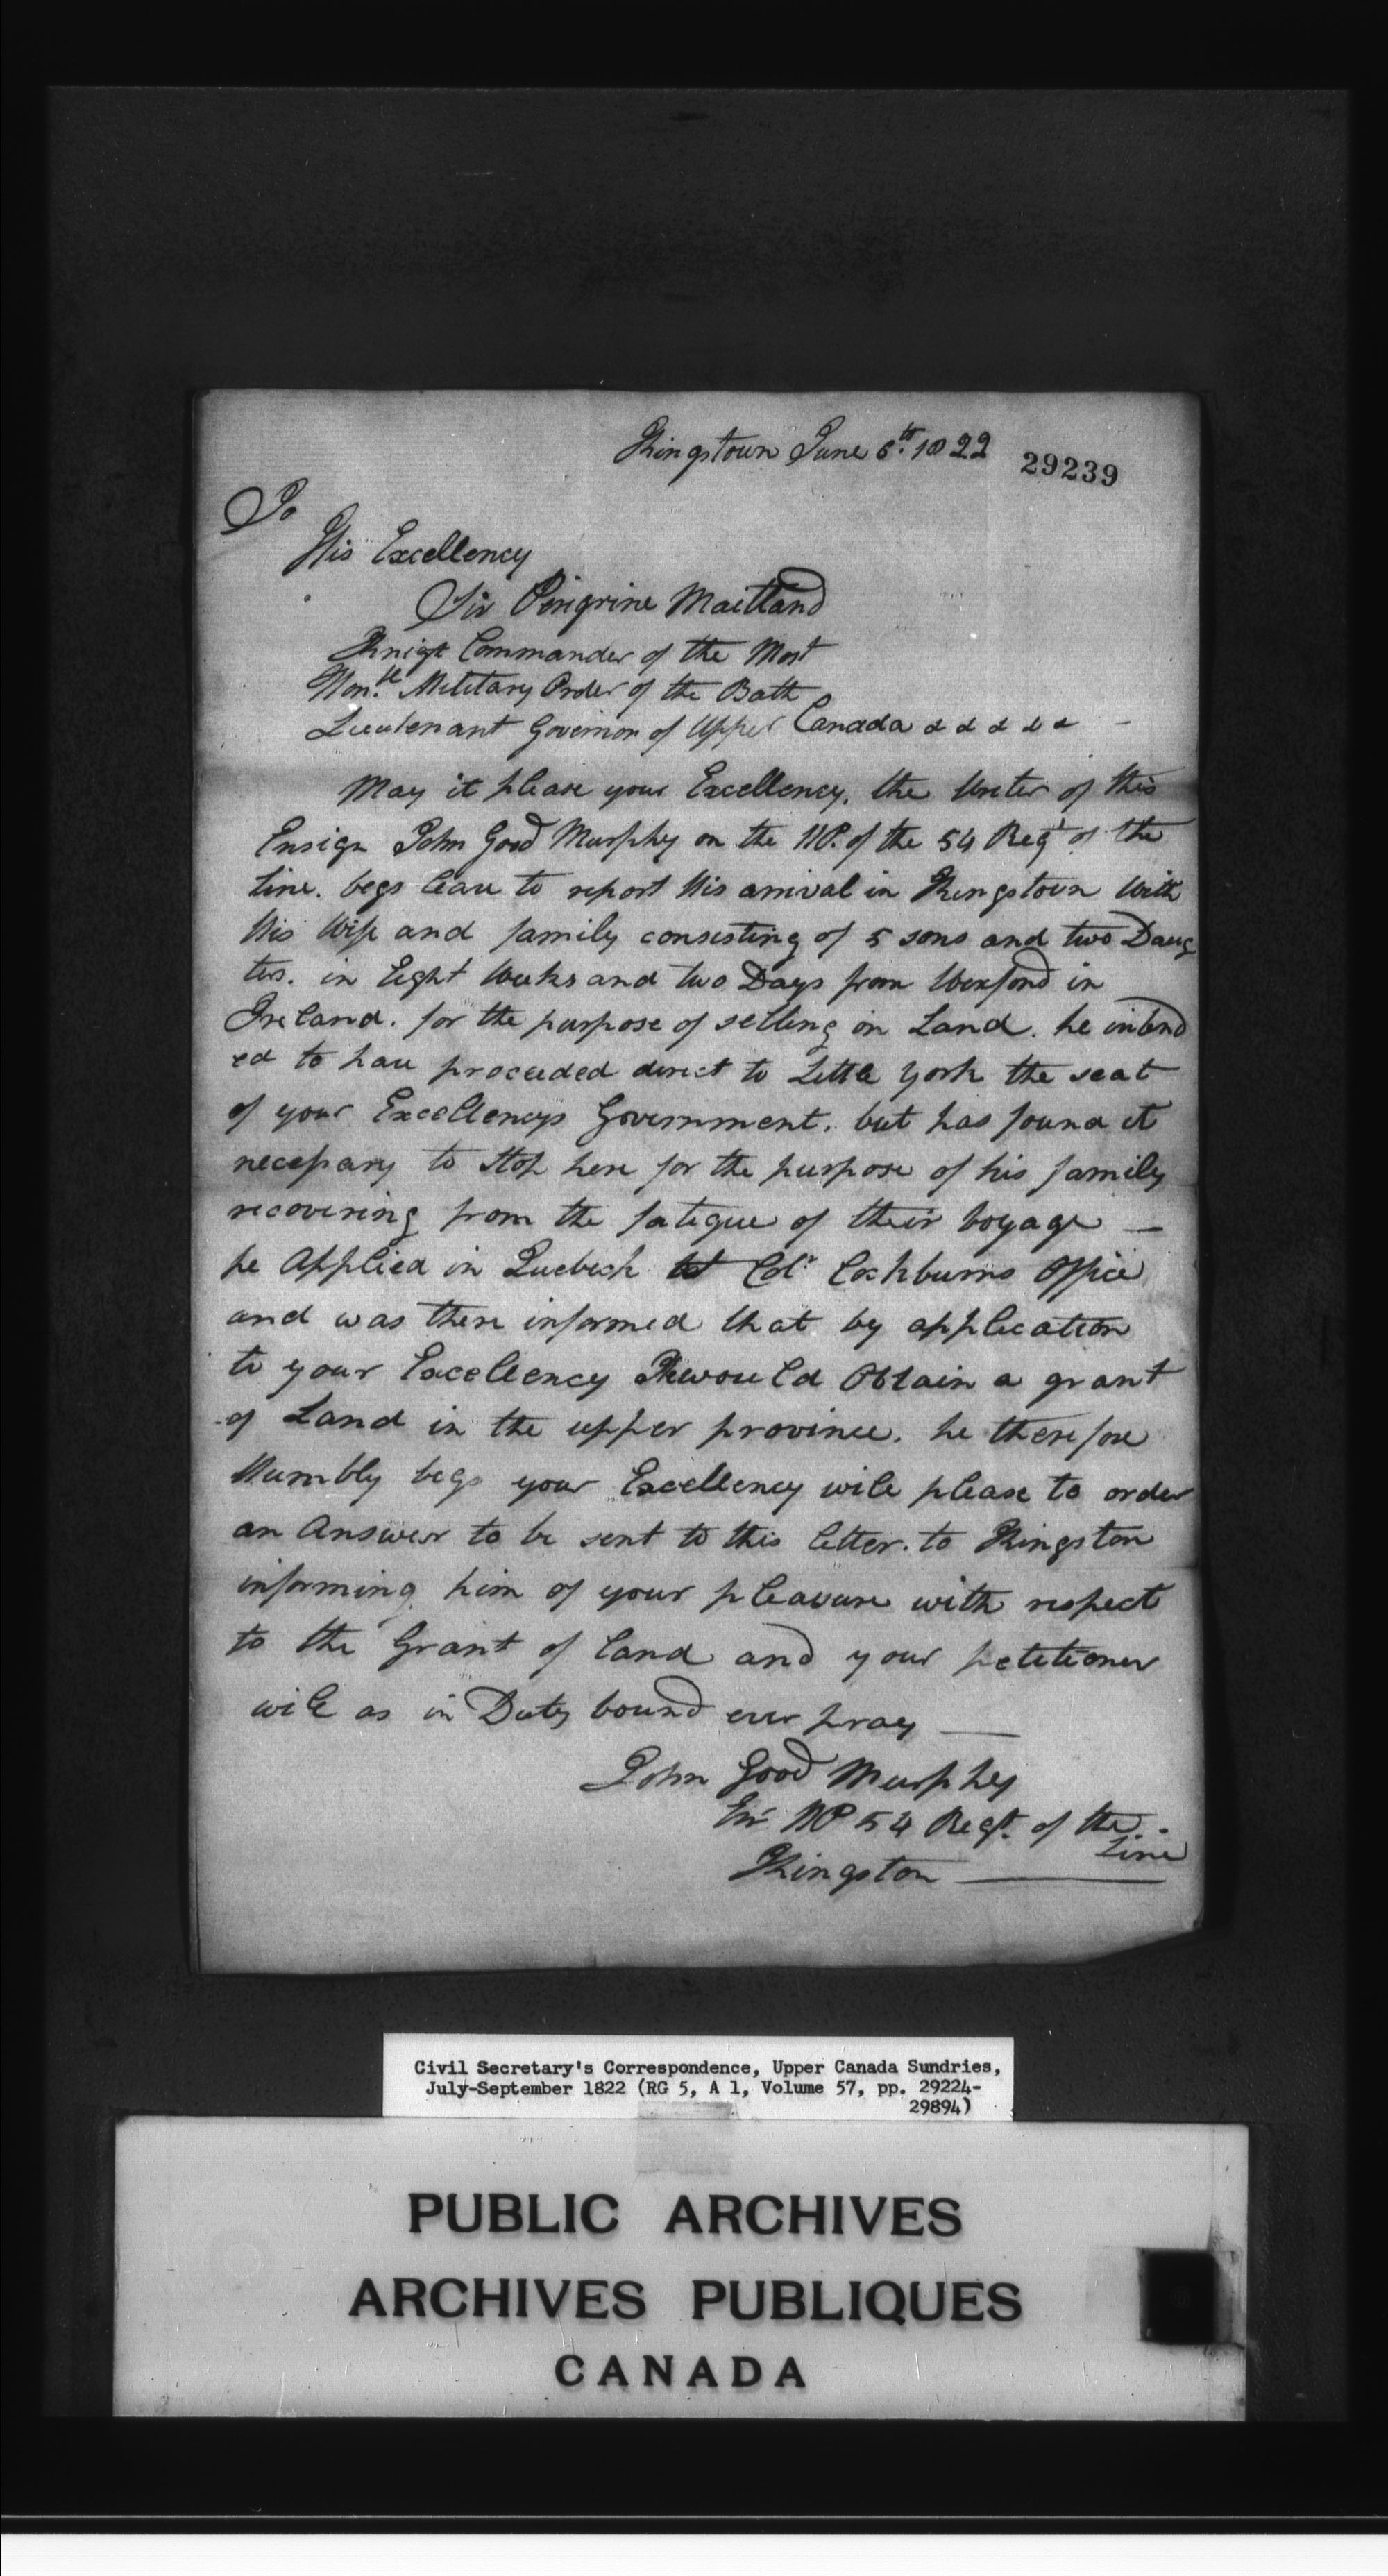 Kingstown June 6th. 1822 29239
To
His Excellency
Sir Peregrine Maitland
Knigt Commander of the Most
Honble Military Order of the Bath
Lieutenant Governor of Upper Canada & & & & &
May it please your Excellency, the Writer of this
Ensign John Good Murphy on the HP. of the 54 Regt of the
Line. begs leave to report His arrival in Kingstown With
His Wife and family consisting of 5 sons and two Daug
ters. in Eight Weeks and two Days from Wexford in
Ireland. for the purpose of setling on Land. he intend
ed to have proceeded direct to Little York the seat
of your Excellencys Government. but has found it
necessary to Stop here for the purpose of his family
recovering from the fatigue of their Voyage —
he Applied in Quebeck at Col. Cockburns Office
and was there informed that by application
to your Excellency He would Obtain a grant
of Land in the upper province. he therefore
Humbly begs your Excellency will please to order
an Answer to be sent to this letter. to Kingston
informing him of your pleasure with respect
to the Grant of land and your petitioner
will as in Duty bound ever pray —
John Good Murphy
En HP 54 Regt. of the
Line
Kingston —
Civil Secretary's Correspondence, Upper Canada Sundries,
July-September 1822 (RG 5, A 1, Volume 57, pp. 29224-
29894)
PUBLIC ARCHIVES
ARCHIVES PUBLIQUES
CANADA